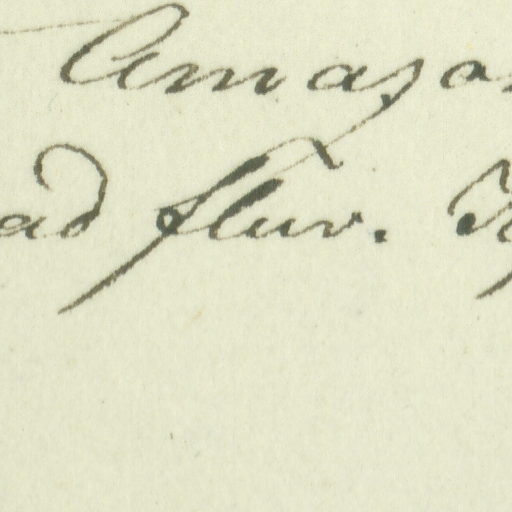 Amazo
ad fluv.